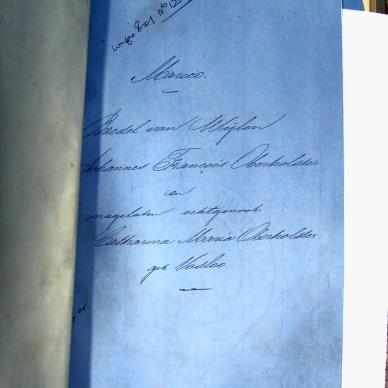 Marico.
Boedel van Wijlen
Johannes François Oberholster
en
nagelaten echtgenoot
Catharina Maria Oberholster
geb Vosloo